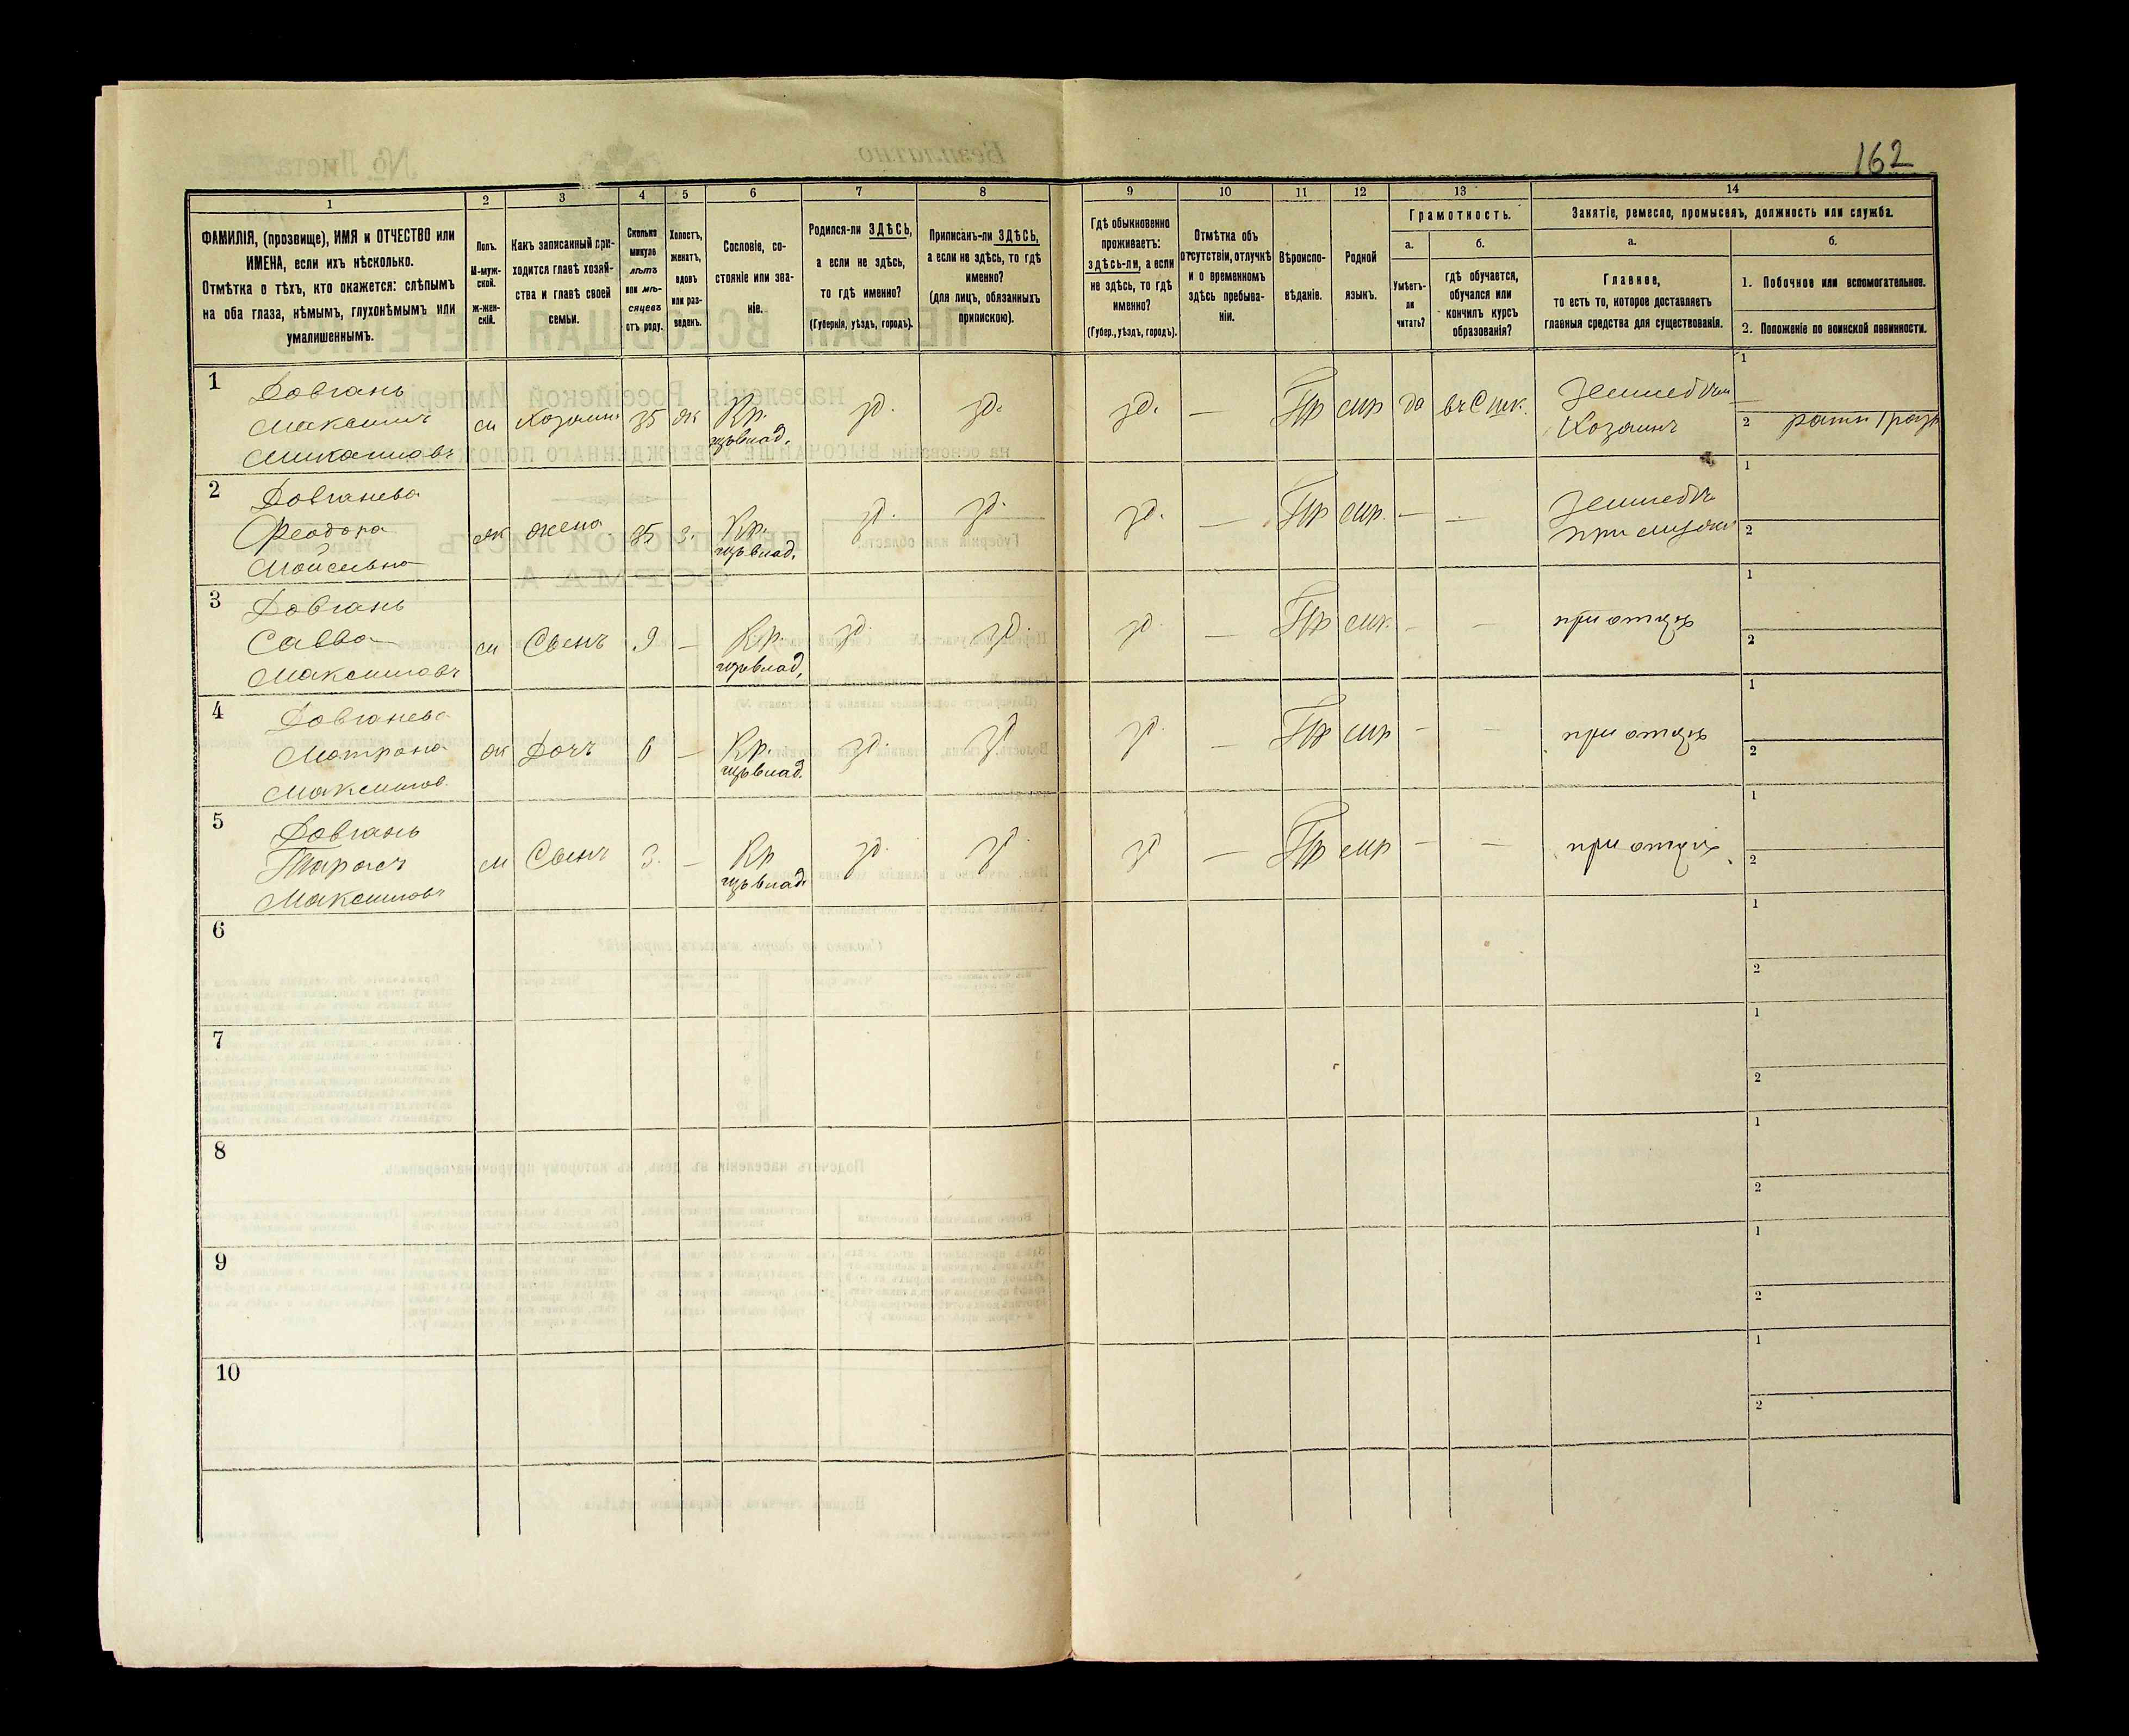 162
1
2
3
4
5
6
7
8
9
10
11
12
13
14
ФАМИЛІЯ, (прозвище), ИМЯ и ОТЧЕСТВО или
ИМЕНА, если ихъ нѣсколько.
Отмѣтка о тѣхъ, кто окажется: слѣпымъ
на оба глаза, нѣмымъ, глухонѣмымъ или
умалишеннымъ.
Полъ.
М-муж-
ской.
ж-жен-
скій.
Какъ записанный при-
ходится главѣ хозяй-
ства и главѣ своей
семьи.
Сколько
минуло
лѣтъ
или мѣ-
сяцевъ
отъ роду.
Холостъ,
женатъ,
вдовъ
или раз-
веденъ.
Сословіе, со-
стояніе или зва-
ніе.
Родился-ли ЗДѢСЬ,
а если не здѣсь,
то гдѣ именно?
(Губернія, уѣздъ, городъ).
Приписанъ-ли ЗДѢСЬ,
а если не здѣсь, то гдѣ
именно?
(для лицъ, обязанныхъ
припискою).
Гдѣ обыкновенно
проживаетъ:
здѣсь-ли, а если
не здѣсь, то гдѣ
именно?
(Губер., уѣздъ, городъ).
Отмѣтка объ
отсутствіи, отлучкѣ
и о временномъ
здѣсь пребыва-
ніи.
Вѣроиспо-
вѣданіе.
Родной
языкъ.
Грамотность.
а.
Умѣетъ-
ли
читать?
б.
гдѣ обучается,
обучался или
кончилъ курсъ
образованія?
Занятіе, ремесло, промыселъ, должность или служба.
а.
Главное,
то есть то, которое доставляетъ
главныя средства для существованія.
б.
1. Побочное или вспомогательное.
2. Положеніе по воинской повинности.
1
Довгань
Максимъ
м
Хозяинъ
35
ж
Кр.
зд.
зд.
зд.
—
Пр
мр
да
Хозяинъ
1
—
2
2
Довганева
Феодора
Моисеевна
ж
жена
35
з.
Кр.
зд.
зд.
зд.
—
Пр
мр.
—
—
1
2
3
Довгань
Савва
Максимовъ
м
Сынъ
9
—
Кр.
зд.
зд.
зд
—
Пр
—
—
при отцѣ
1
2
4
Довганева
Матрона
Максимов.
ж
Дочь
6
—
Кр.
зд.
зд
зд.
—
Пр
мр
—
—
при отцѣ
1
2
5
Довгань
Тарасъ
Максимовъ
м
Сынъ
3.
—
Кр
зд.
зд
зд
—
Пр
мр
—
—
при отцѣ
1
2
6
1
2
7
1
2
8
1
2
9
1
2
10
1
2